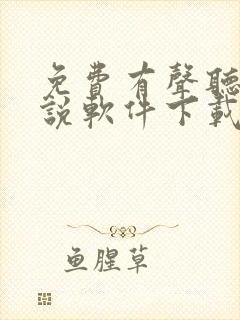 免費有聲聽
說軟件下載
鱼腥草